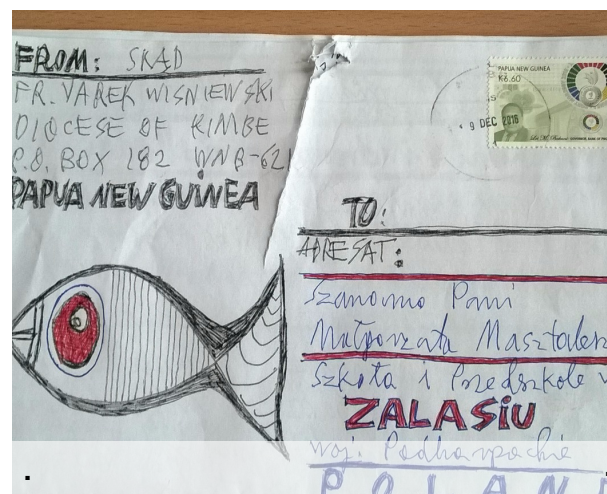 FROM: SKĄD
FR. YAREK WISNIEWSKI
DIOCESE OF KIMBE
P.O. BOX 182 WNB-621
PAPUA NEW GUINEA
PAPUA NEW GUINEA
K6.60
9 DEC 2016
TO:
ADRESAT:
Szanowna Pani
Małgorzata
Szkoła i Przedszkole
ZALASIU
woj. Podkarpackie
POLAN